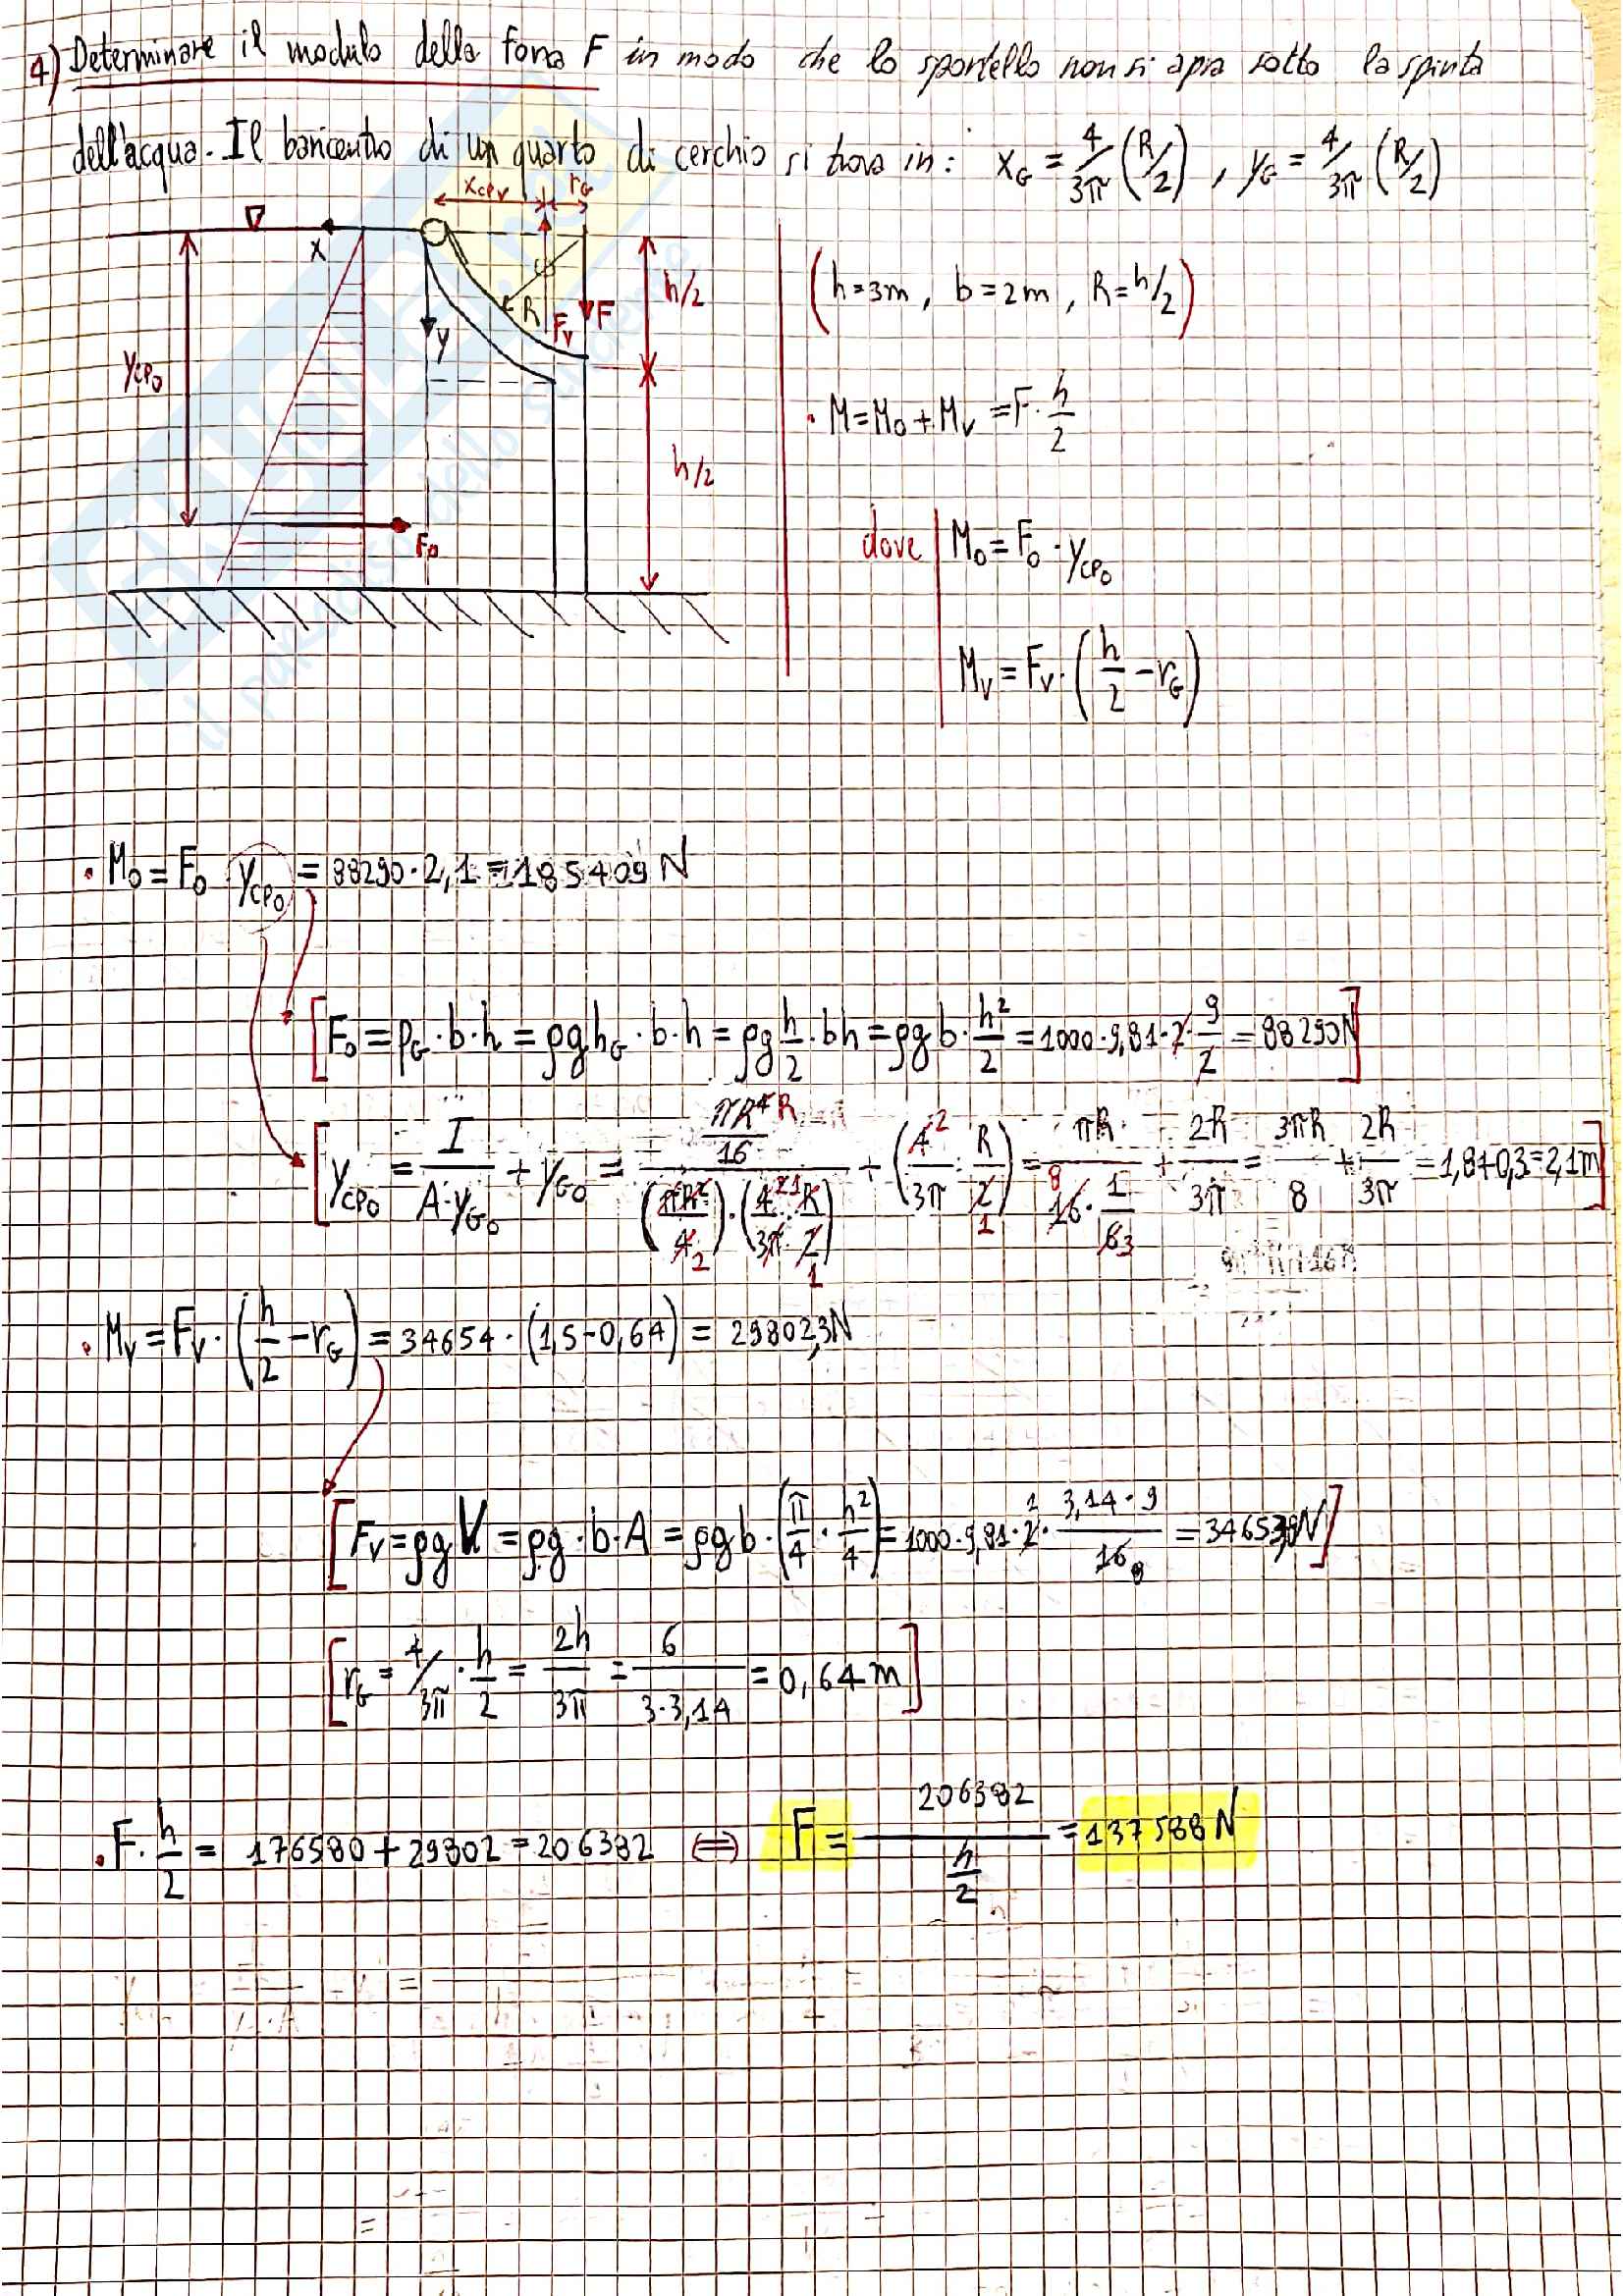 4) Determinare il modulo della forza F in modo che lo sportello non si apra sotto la spinta
dell'acqua. Il baricentro di un quarto di cerchio si trova in: x_G = 4/3π (R/2), y_G = 4/3π (R/2)
x_CPv r_G
x
y
R
F_v
F
h/2
h/2
y_CPo
F_o
(h=3m, b=2m, R=h/2)
• M=M_o+M_v = F·h/2
dove M_o=F_o·y_CPo
M_v=F_v·(h/2-r_G)
• M_o=F_o y_CPo = 88290·2,1=185409 N
[F_o=p_G·b·h=ρgh_G·b·h=ρg h/2·bh=ρgb·h²/2=1000·9,81·2·9/2=88290N]
[y_CPo = I/(A·y_Go) + y_Go = (πR⁴/16)/((πR²/4)·(4/3π·R/2)) + (4/3π·R/2) = πR/(16·1/6) + 2R/3π = 3πR/8 + 2R/3π = 1,8+0,3=2,1m]
• M_v=F_v·(h/2-r_G)=34654·(1,5-0,64)= 29802,3N
[F_v=ρgV=ρg·b·A=ρgb·(π/4·h²/4)=1000·9,81·2·(3,14·9)/16=34653,8N]
[r_G=4/3π·h/2=2h/3π=6/(3·3,14)=0,64m]
• F·h/2 = 176580+29802=206382 ⇔ F=206382/(h/2)=137588N